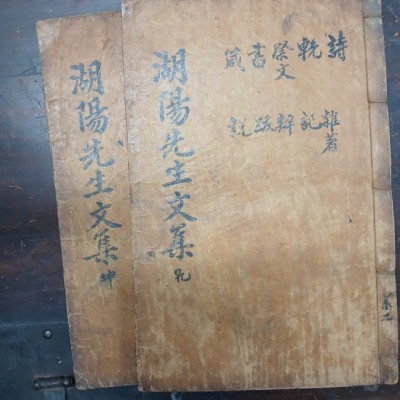 詩 輓 祭文 書 箴
雜著 記 辨 跋 說
湖陽先生文集 乾
湖陽先生文集 坤